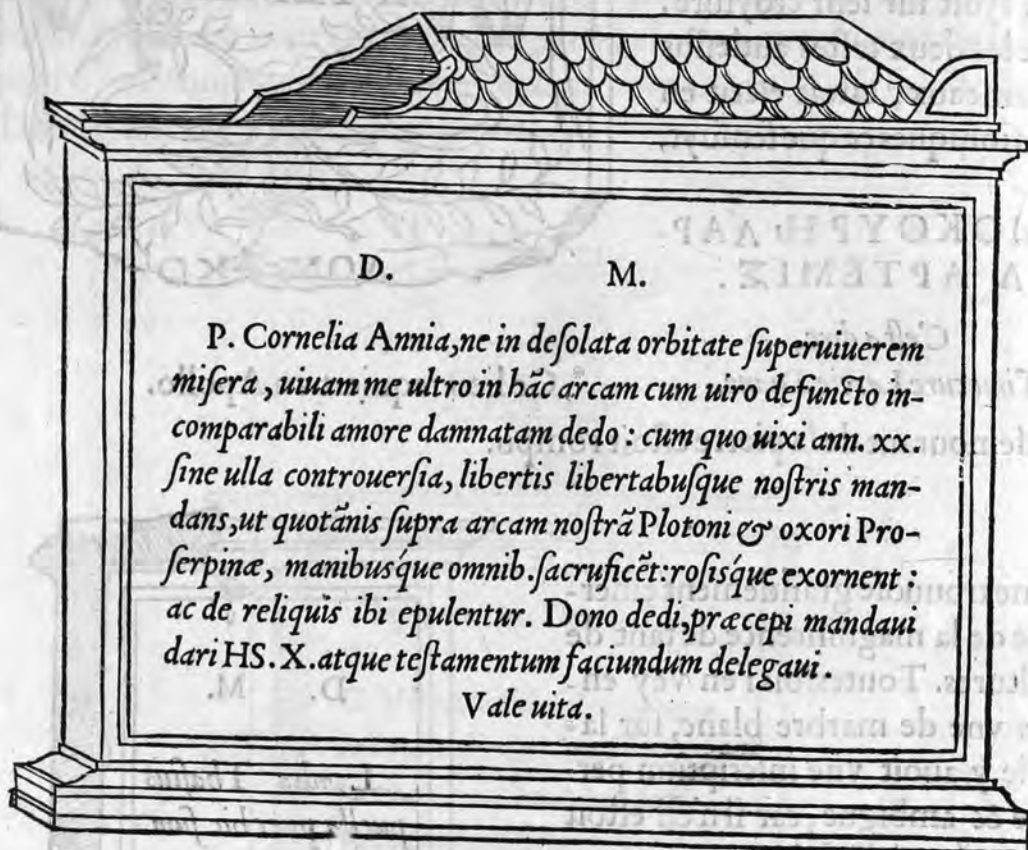 D. M.
P. Cornelia Annia, ne in deſolata orbitate ſuperuiuerem
miſera, uiuam me ultro in hãc arcam cum uiro defuncto in-
comparabili amore damnatam dedo: cum quo uixi ann. xx.
ſine ulla controuerſia, libertis libertabuſque noſtris man-
dans, ut quotãnis ſupra arcam noſtrã Plotoni & oxori Pro-
ſerpinæ, manibusq́ue omnib. ſacruficẽt: roſisq́ue exornent:
ac de reliquis ibi epulentur. Dono dedi, præcepi mandaui
dari HS. X. atque teſtamentum faciundum delegaui.
Vale uita.